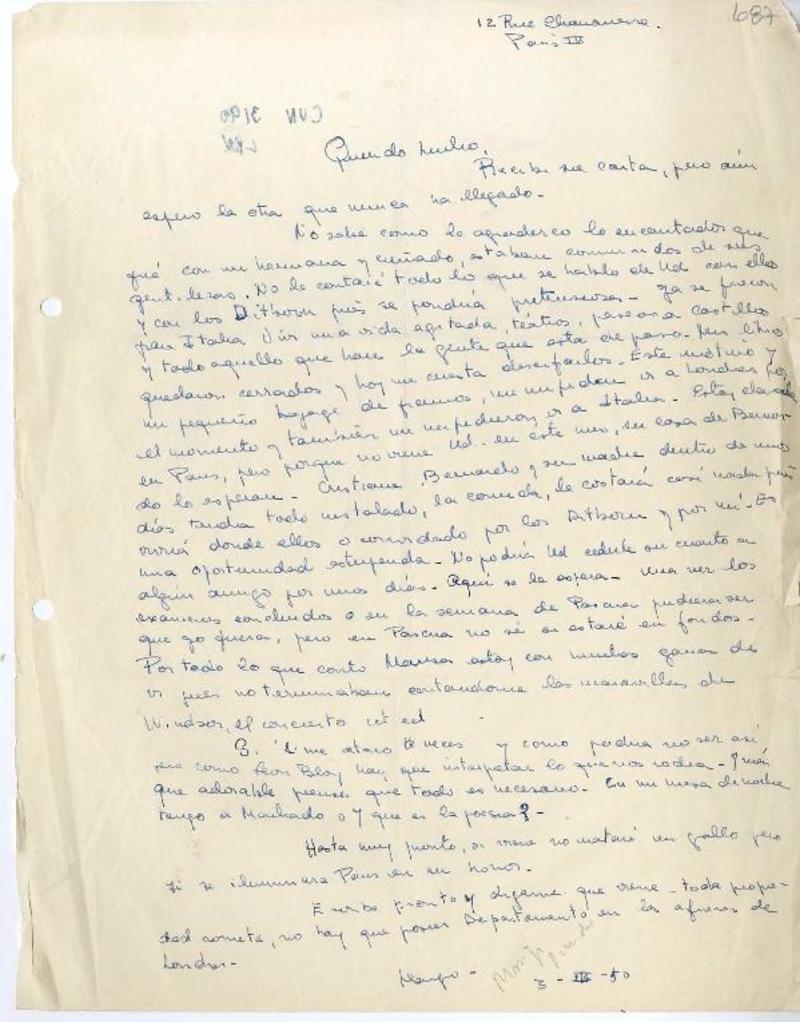 687
12 Rue Chanoinesse.
Paris IV
CUN 3190
Querido Lucho,
Recibí su carta, pero aún
espero la otra que nunca ha llegado -
No sabe como le agradezco lo encantados que
fué con mi hermana y cuñado, estaban conmovidos de sus
gentilezas. No le contaré todo lo que se habló de Ud con ellos
y con los Ditborn pues se pondría pretensioso - Ya se fueron
para Italia vida agitada, teatros, paseos a castillos
y todo aquello que hace la gente que está de paso - Mis libros
quedaron cerrados y hoy me cuesta descifrarlos - Este motivo y
mi pequeño bagage de francos, me impiden ir a Londres por
el momento y también me impidieron ir a Italia - Estoy clavada
en Paris, pero porque no viene Ud. en éste mes, en casa de Bernar-
do lo esperan - Cristiana Bernardo y su madre dentro de unos
días tendrá todo instalado, la comida, le costará casi nada pués
donde ellos o convidado por los Ditborn y por mí - Es
una oportunidad estupenda - No podría Ud en cuanto a
algún amigo por unos días - Aquí se le espera - Una vez los
exámenes concluidos o en la semana de Pascua pudiera ser
que yo fuera, pero en Pascua no sé si estaré en fondos -
Por todo lo que contó estoy con muchas ganas de
ir pues no terminaban contandome las maravillas de
Windsor, el concierto ect ect -
me ataco 3 veces y como podría no ser así
pero como Leon Bloy hay que interpretar lo que nos rodea - Y más
que adorable pienso que todo es necesario - En mi mesa de noche
tengo a Machado o Y que es la poesía? -
Hasta muy pronto, si viene no mataré un gallo pero
si se iluminará Paris en su honor -
Escriba pronto y digame que viene - toda propie-
dad cometa, no hay que poseer Departamento en las afueras de
Londres -
3 - III - 50